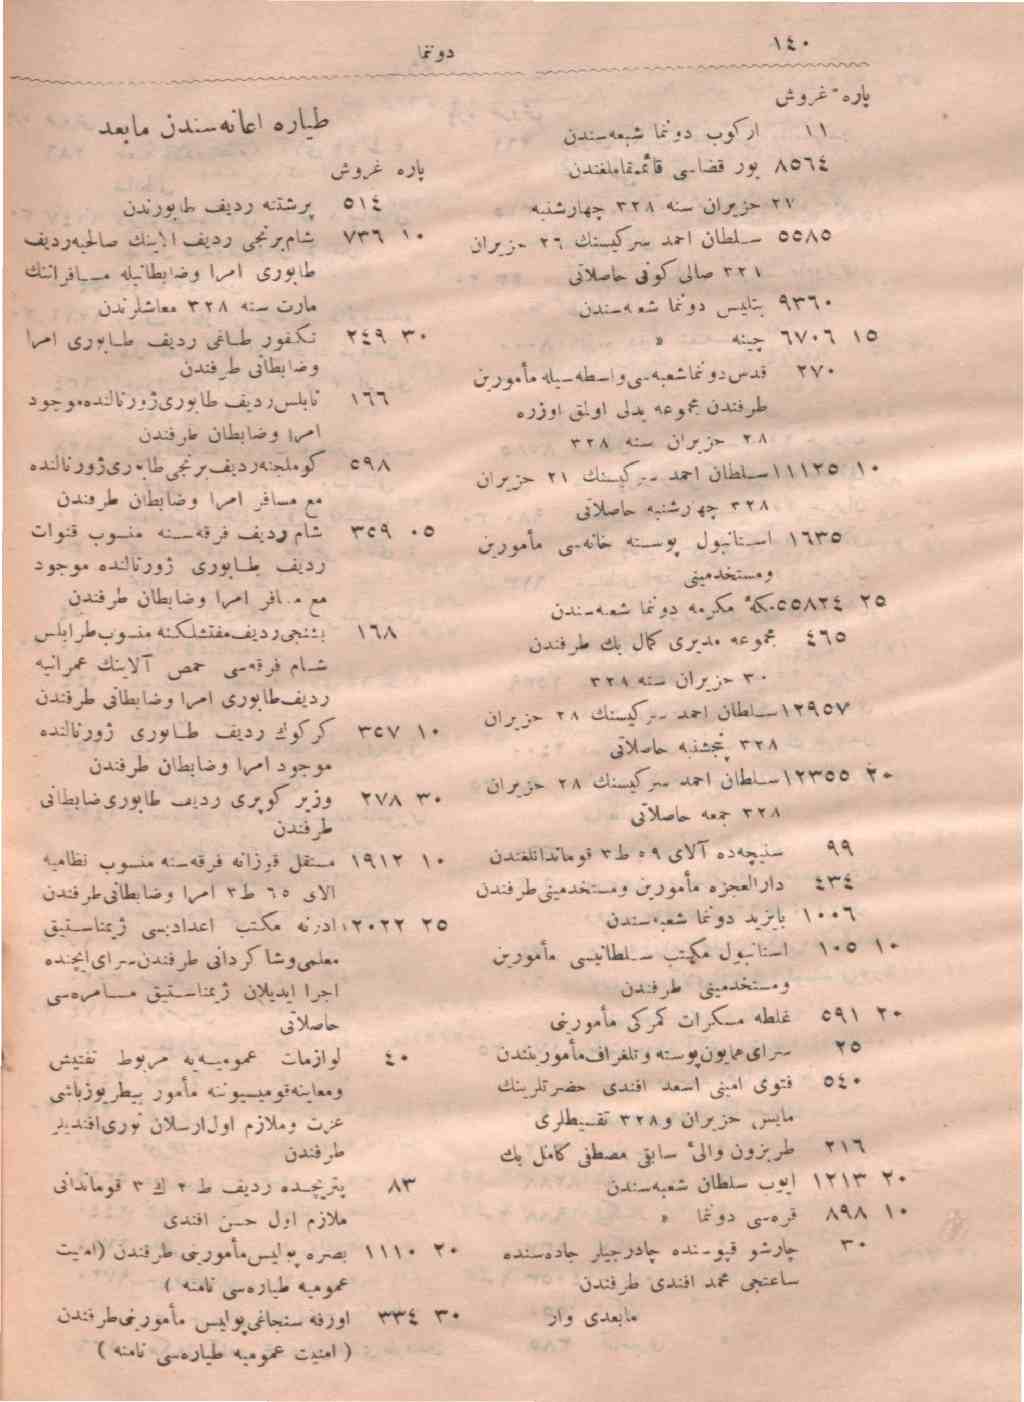 ١٤٠
دوننما
پاره غروش
١١ اركوب دوننما شعبه‌سندن
٨٥٦٤ بور قضاسی قائممقاملغندن
٢٧ حزیران سنه ٣٢٨ چهارشنبه
٥٥٨٥ سلطان احمد سركیسنك ٢٦ حزیران
٣٢١ صالی كونی حاصلاتی
٩٣٦٠ بتلیس دوننما شعبه‌سندن
١٥ ٦٧٠٦ چینه »
٢٧٠ قدس دوننما شعبه‌سی واسطه‌سیله مأمورین
طرفندن مجموعه بدلی اولمق اوزره
٢٨ حزیران سنه ٣٢٨
١٠ ١١١٢٥ سلطان احمد سركیسنك ٢١ حزیران
٣٢٨ چهارشنبه حاصلاتی
١٦٣٥ استانبول پوسته خانه‌سی مأمورین
ومستخدمینی
٢٥ ٥٥٨٢٤ مكهٔ مكرمه دوننما شعبه‌سندن
٤٦٥ مجموعه مدیری كمال بك طرفندن
٣٠ حزیران سنه ٣٢٨
١٢٩٥٧ سلطان احمد سركیسنك ٢٨ حزیران
٣٢٨ پنجشنبه حاصلاتی
٢٠ ١٢٣٥٥ سلطان احمد سركیسنك ٢٨ حزیران
٣٢٨ جمعه حاصلاتی
٩٩ سنیچه‌ده آلای ٥٩ ط ٣ قومانداانلغندن
٤٣٤ دارالعجزه مأمورین ومستخدمینی طرفندن
١٠٠٦ بایزید دوننما شعبه‌سندن
١٠ ١٠٥ استانبول مكتب سلطانیسی مأمورین
ومستخدمینی طرفندن
٢٠ ٥٩١ غلطه مسكرات كمركی مأمورینی
٢٥ سرای همایون پوسته وتلغراف مأمورینندن
٥٤٠ فتوی امینی اسعد افندی حضرتلرینك
مایس حزیران و٣٢٨ تقسیطلری
٢١٦ طربزون والیٔ سابقی مصطفی كامل بك
٢٠ ١٢١٣ ایوب سلطان شعبه‌سندن
١٠ ٨٩٨ قره‌سی دوننما »
٣٠ چارشو قپوسنده چادرجیلر جاده‌سنده
ساعتجی محمد افندی طرفندن
مابعدی وار
طیاره اعانه‌سندن مابعد
پاره غروش
٥١٤ پرشتنه ردیف طابورندن
١٠ ٧٣٦ شام برنجی ردیف الاینك صالحیه ردیف
طابوری امرا وضابطانیله مسافراتنك
مارت سنه ٣٢٨ معاشلرندن
٣٠ ٢٤٩ تكفور طاغی ردیف طابوری امرا
وضابطانی طرفندن
١٦٦ نابلس ردیف طابوری ژورنالنده موجود
امرا وضابطان طرفندن
٥٩٨ كوملجنه ردیف برنجی طابوری ژورنالنده
مع مسافر امرا وضابطان طرفندن
٠٥ ٣٥٩ شام ردیف فرقه‌سنه منسوب قنوات
ردیف طابوری ژورنالنده موجود
مع مسافر امرا وضابطان طرفندن
١٦٨ بشنجی ردیف مفتشلكنه منسوب طرابلس
شام فرقه‌سی حمص آلاینك عمرانیه
ردیف طابوری امرا وضابطانی طرفندن
١٠ ٣٥٧ كركوك ردیف طابوری ژورنالنده
موجود امرا وضابطان طرفندن
٣٠ ٢٧٨ وزیر كوپری ردیف طابوری ضابطانی
طرفندن
١٠ ١٩١٢ مستقل قوزانه فرقه‌سنه منسوب نظامیه
الای ٦٥ ط ٣ امرا وضابطانی طرفندن
٢٥ ٢٠٢٢ ادرنه مكتب اعدادیسی ژیمناستیق
معلمی وشاكردانی طرفندن سرای ایچنده
اجرا ایدیلان ژیمناستیق مسامره‌سی
حاصلاتی
٤٠ لوازمات عمومیه‌یه مربوط تفتیش
ومعاینه قومیسیوننه مأمور بیطر یوزباشی
عزت وملازم اول ارسلان نوری افندیلر
طرفندن
٨٣ پتریچده ردیف ط ٢ ك ٣ قوماندانی
ملازم اول حسن افندی
٢٠ ١١١٠ بصره پولیس مأمورینی طرفندن (امنیت
عمومیه طیاره‌سی نامنه )
٣٠ ٣٣٤ اورفه سنجاغی پولیس مأمورینی طرفندن
( امنیت عمومیه طیاره‌سی نامنه )